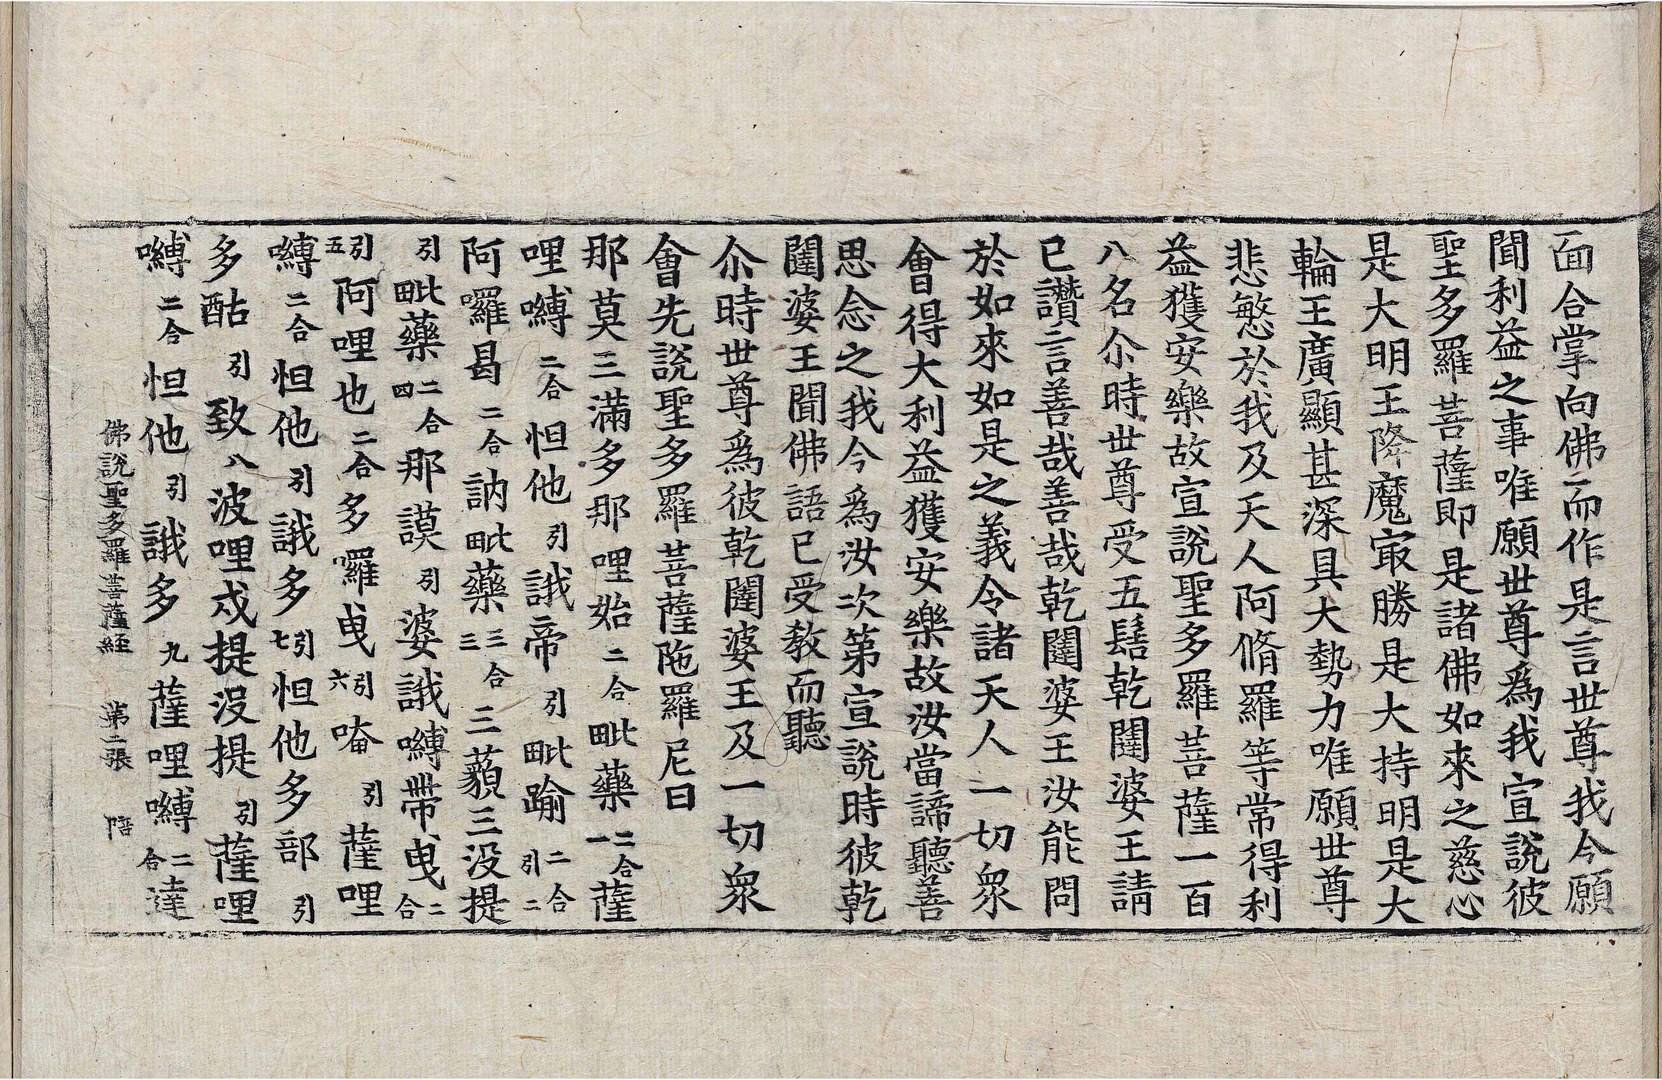 面合掌向佛而作是言世尊我今願
聞利益之事唯願世尊爲我宣說彼
聖多羅菩薩即是諸佛如來之慈心
是大明王降魔㝡勝是大持明是大
輪王廣顯甚深具大勢力唯願世尊
悲愍於我及天人阿脩羅等常得利
益獲安樂故宣說聖多羅菩薩一百
八名尒時世尊受五髻乾闥婆王請
已讚言善哉善哉乾闥婆王汝能問
於如來如是之義令諸天人一切衆
會得大利益獲安樂故汝當諦聽善
思念之我今爲汝次第宣說時彼乾
闥婆王聞佛語已受教而聽
尒時世尊爲彼乾闥婆王及一切衆
會先說聖多羅菩薩陁羅尼曰
那莫三滿多那哩始二合毗藥二合一薩
哩嚩二合怛他引誐帝引毗踰二合引二
阿囉曷二合訥毗藥三合三三藐三没提
引毗藥二合四那謨引婆誐嚩帶曳二合
引五阿哩也二合多囉曳引六唵引薩哩
嚩二合怛他引誐多引七怛他多部引
多酤引致八波哩戍提没提引薩哩
嚩二合怛他引誐多九薩哩嚩二合達
佛說聖多羅菩薩経 第二張